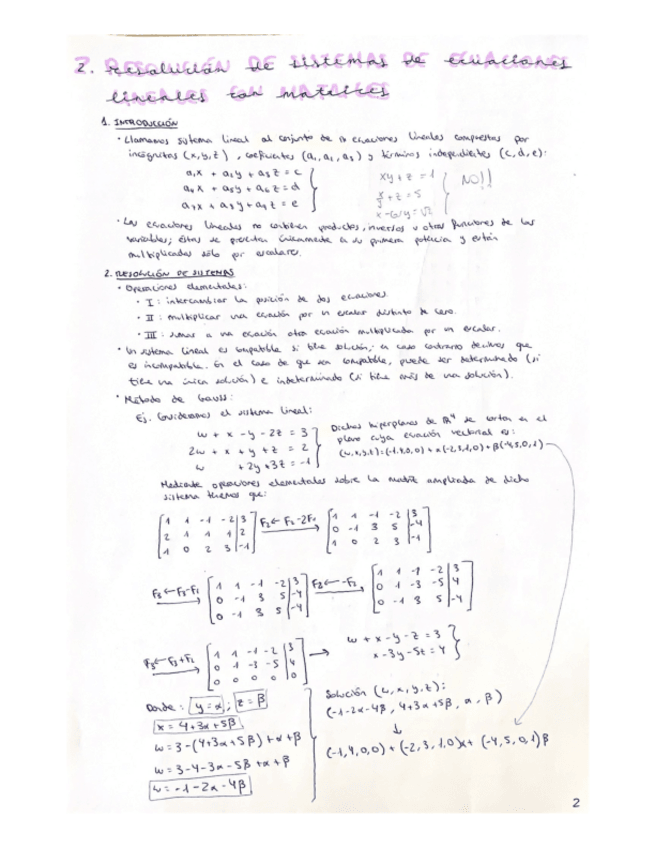 2. Resolución de sistemas de ecuaciones
lineales con matrices
1. INTRODUCCIÓN
· Llamamos sistema lineal al conjunto de n ecuaciones lineales compuestas por
incógnitas (x,y,z), coeficientes (a₁,a₂,a₃) y términos independientes (c,d,e):
a₁x + a₂y + a₃z = c
a₄x + a₅y + a₆z = d
a₇x + a₈y + a₉z = e
xy + z = 1
+ z = 5
NO!!
· Las ecuaciones lineales no contienen productos, inversos u otras funciones de las
variables; éstas se presentan únicamente a su primera potencia y están
multiplicadas sólo por escalares.
2. RESOLUCIÓN DE SISTEMAS
· Operaciones elementales:
· I: intercambiar la posición de dos ecuaciones.
· II: multiplicar una ecuación por un escalar distinto de cero.
· III: sumar a una ecuación otra ecuación multiplicada por un escalar.
· Un sistema lineal es compatible si tiene solución; en caso contrario decimos que
es incompatible. En el caso de que sea compatible, puede ser determinado (si
tiene una única solución) e indeterminado (si tiene más de una solución).
· Método de Gauss:
Ej. Consideremos el sistema lineal:
w + x - y - 2z = 3
2w + x + y + z = 2
w + 2y + 3z = -1
Dichos hiperplanos de ℝ⁴ se cortan en el
plano cuya ecuación vectorial es:
(w,x,y,z)=(-1,4,0,0)+α(-2,3,1,0)+β(-4,5,0,1)
Mediante operaciones elementales sobre la matriz ampliada de dicho
sistema tenemos que:
1 1 -1 -2 | 3
2 1 1 1 | 2
1 0 2 3 | -1
F₂ ← F₂-2F₁
1 1 -1 -2 | 3
0 -1 3 5 | -4
1 0 2 3 | -1
F₃ ← F₃-F₁
1 1 -1 -2 | 3
0 -1 3 5 | -4
0 -1 3 5 | -4
F₂ ← -F₂
1 1 -1 -2 | 3
0 1 -3 -5 | 4
0 -1 3 5 | -4
F₃ ← F₃+F₂
1 1 -1 -2 | 3
0 1 -3 -5 | 4
0 0 0 0 | 0
→
w + x - y - z = 3
x - 3y - 5z = 4
Donde: y = α ; z = β
x = 4+3α+5β
w = 3-(4+3α+5β)+α+β
w = 3-4-3α-5β+α+β
w = -1-2α-4β
Solución (w,x,y,z):
(-1-2α-4β, 4+3α+5β, α, β)
↓
(-1,4,0,0)+(-2,3,1,0)α+(-4,5,0,1)β
2